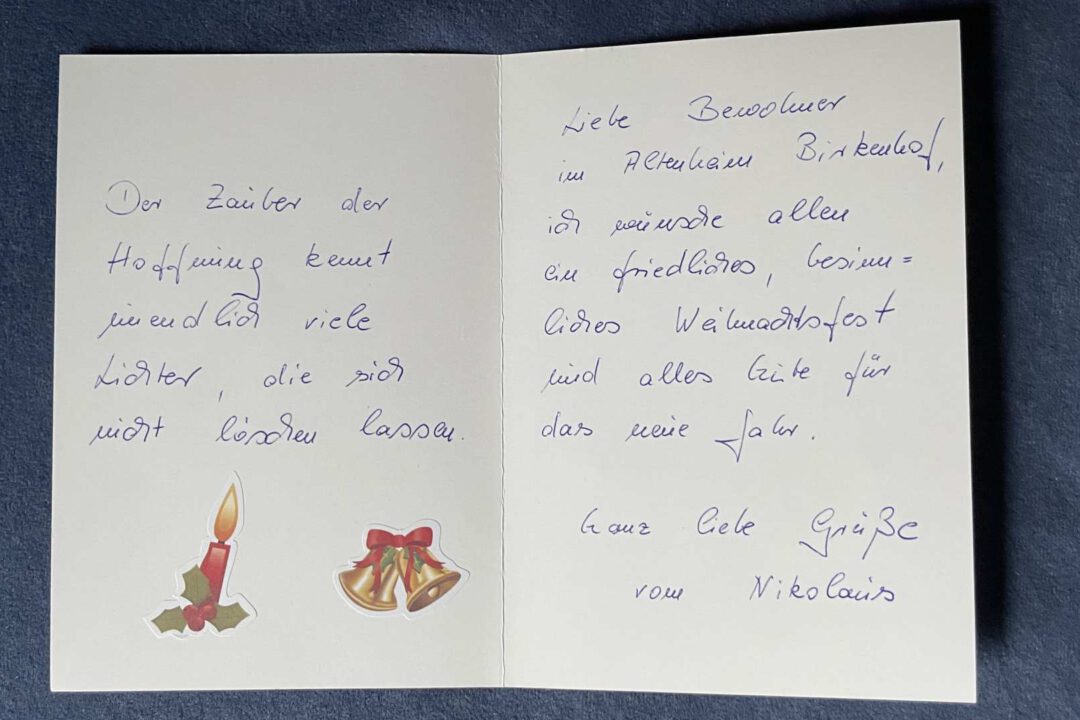 Der Zauber der
Hoffnung kennt
unendlich viele
Lichter, die sich
nicht löschen lassen.
Liebe Bewohner
im Altenheim Birkenhof,
ich wünsche allen
ein friedliches, besinn=
liches Weihnachtsfest
und alles Gute für
das neue Jahr.
Ganz liebe Grüße
vom Nikolaus